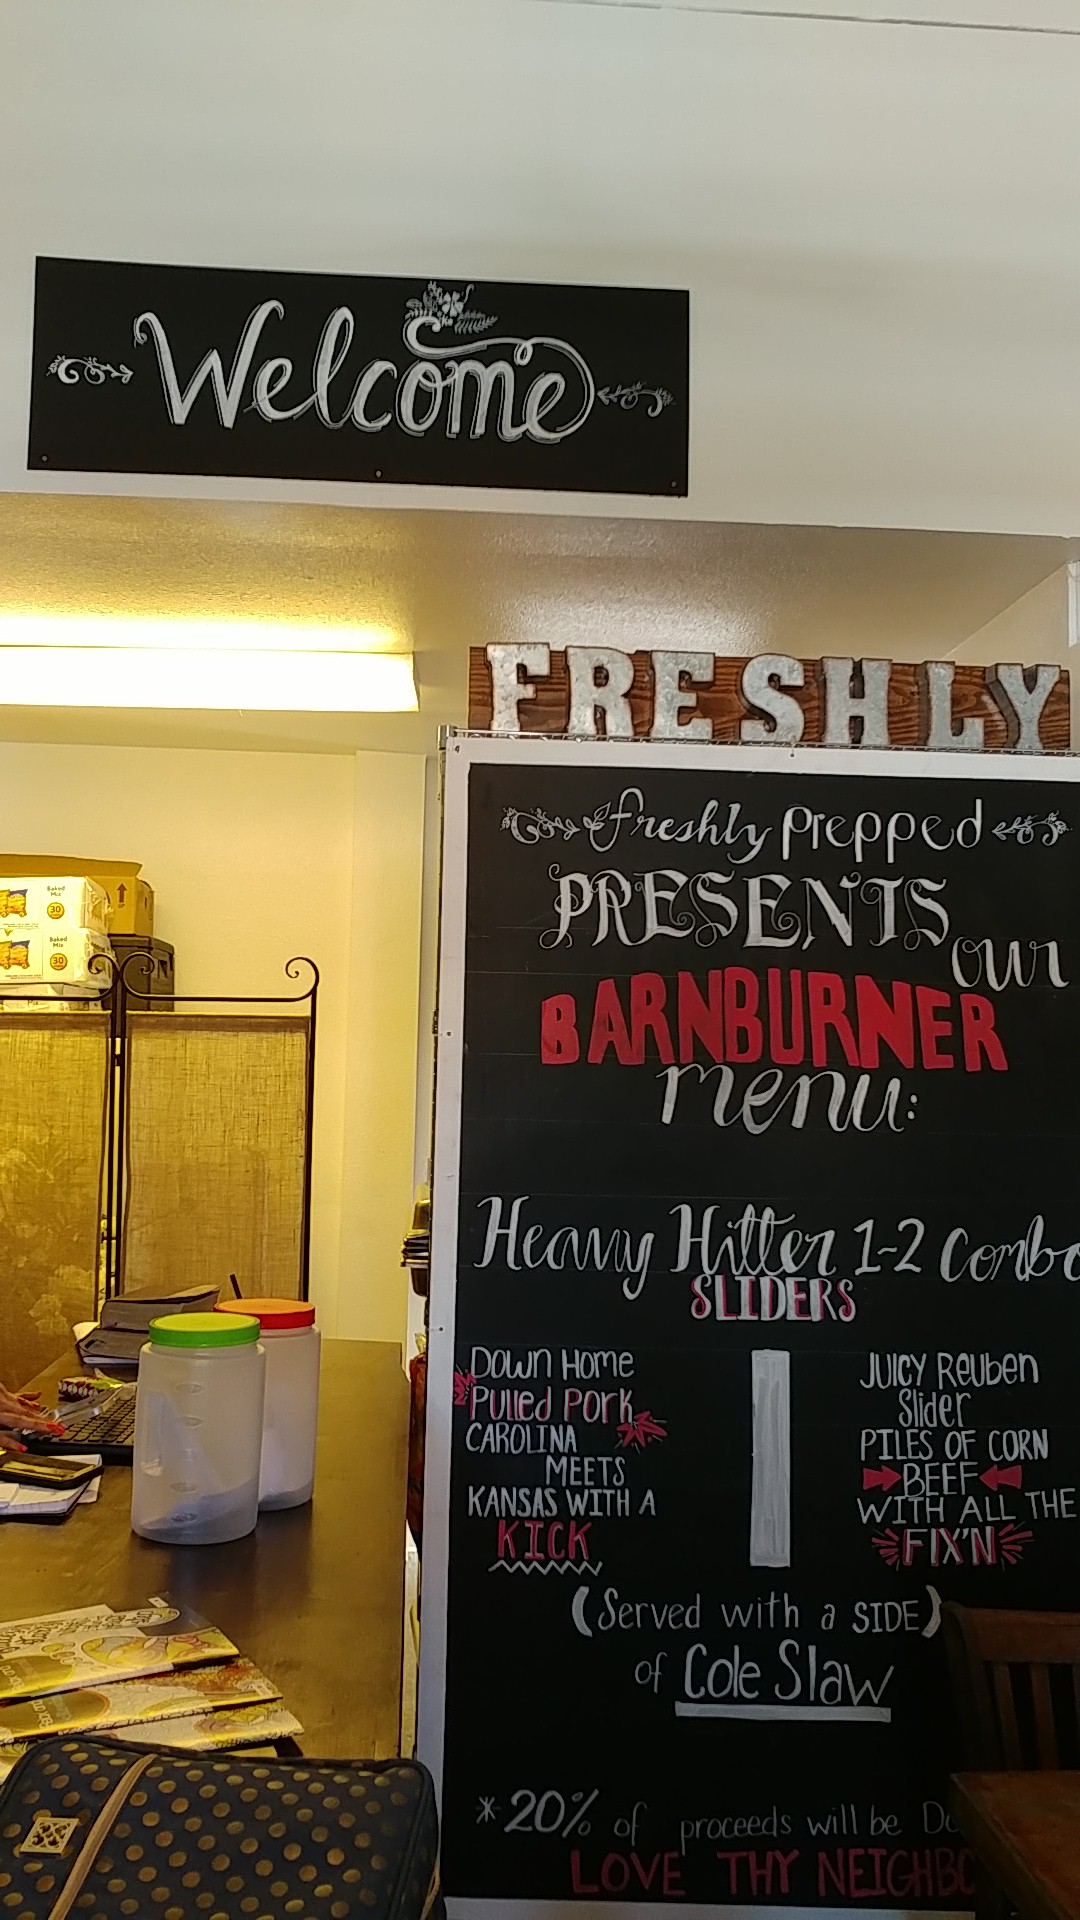 Welcome
FRESHLY
freshly prepped
PRESENTS
our
BARNBURNER
menu:
Heavy Hitter 1-2 Combo
SLIDERS
Down Home
Pulled Pork
CAROLINA
MEETS
KANSAS WITH A
KICK
JUICY Reuben
Slider
PILES OF CORN
BEEF
WITH ALL THE
FIX'N
(Served with a SIDE)
of Cole Slaw
*20% of proceeds will be Do
LOVE THY NEIGHBO
Baked
Mix
30
Baked
Mix
30
Mix